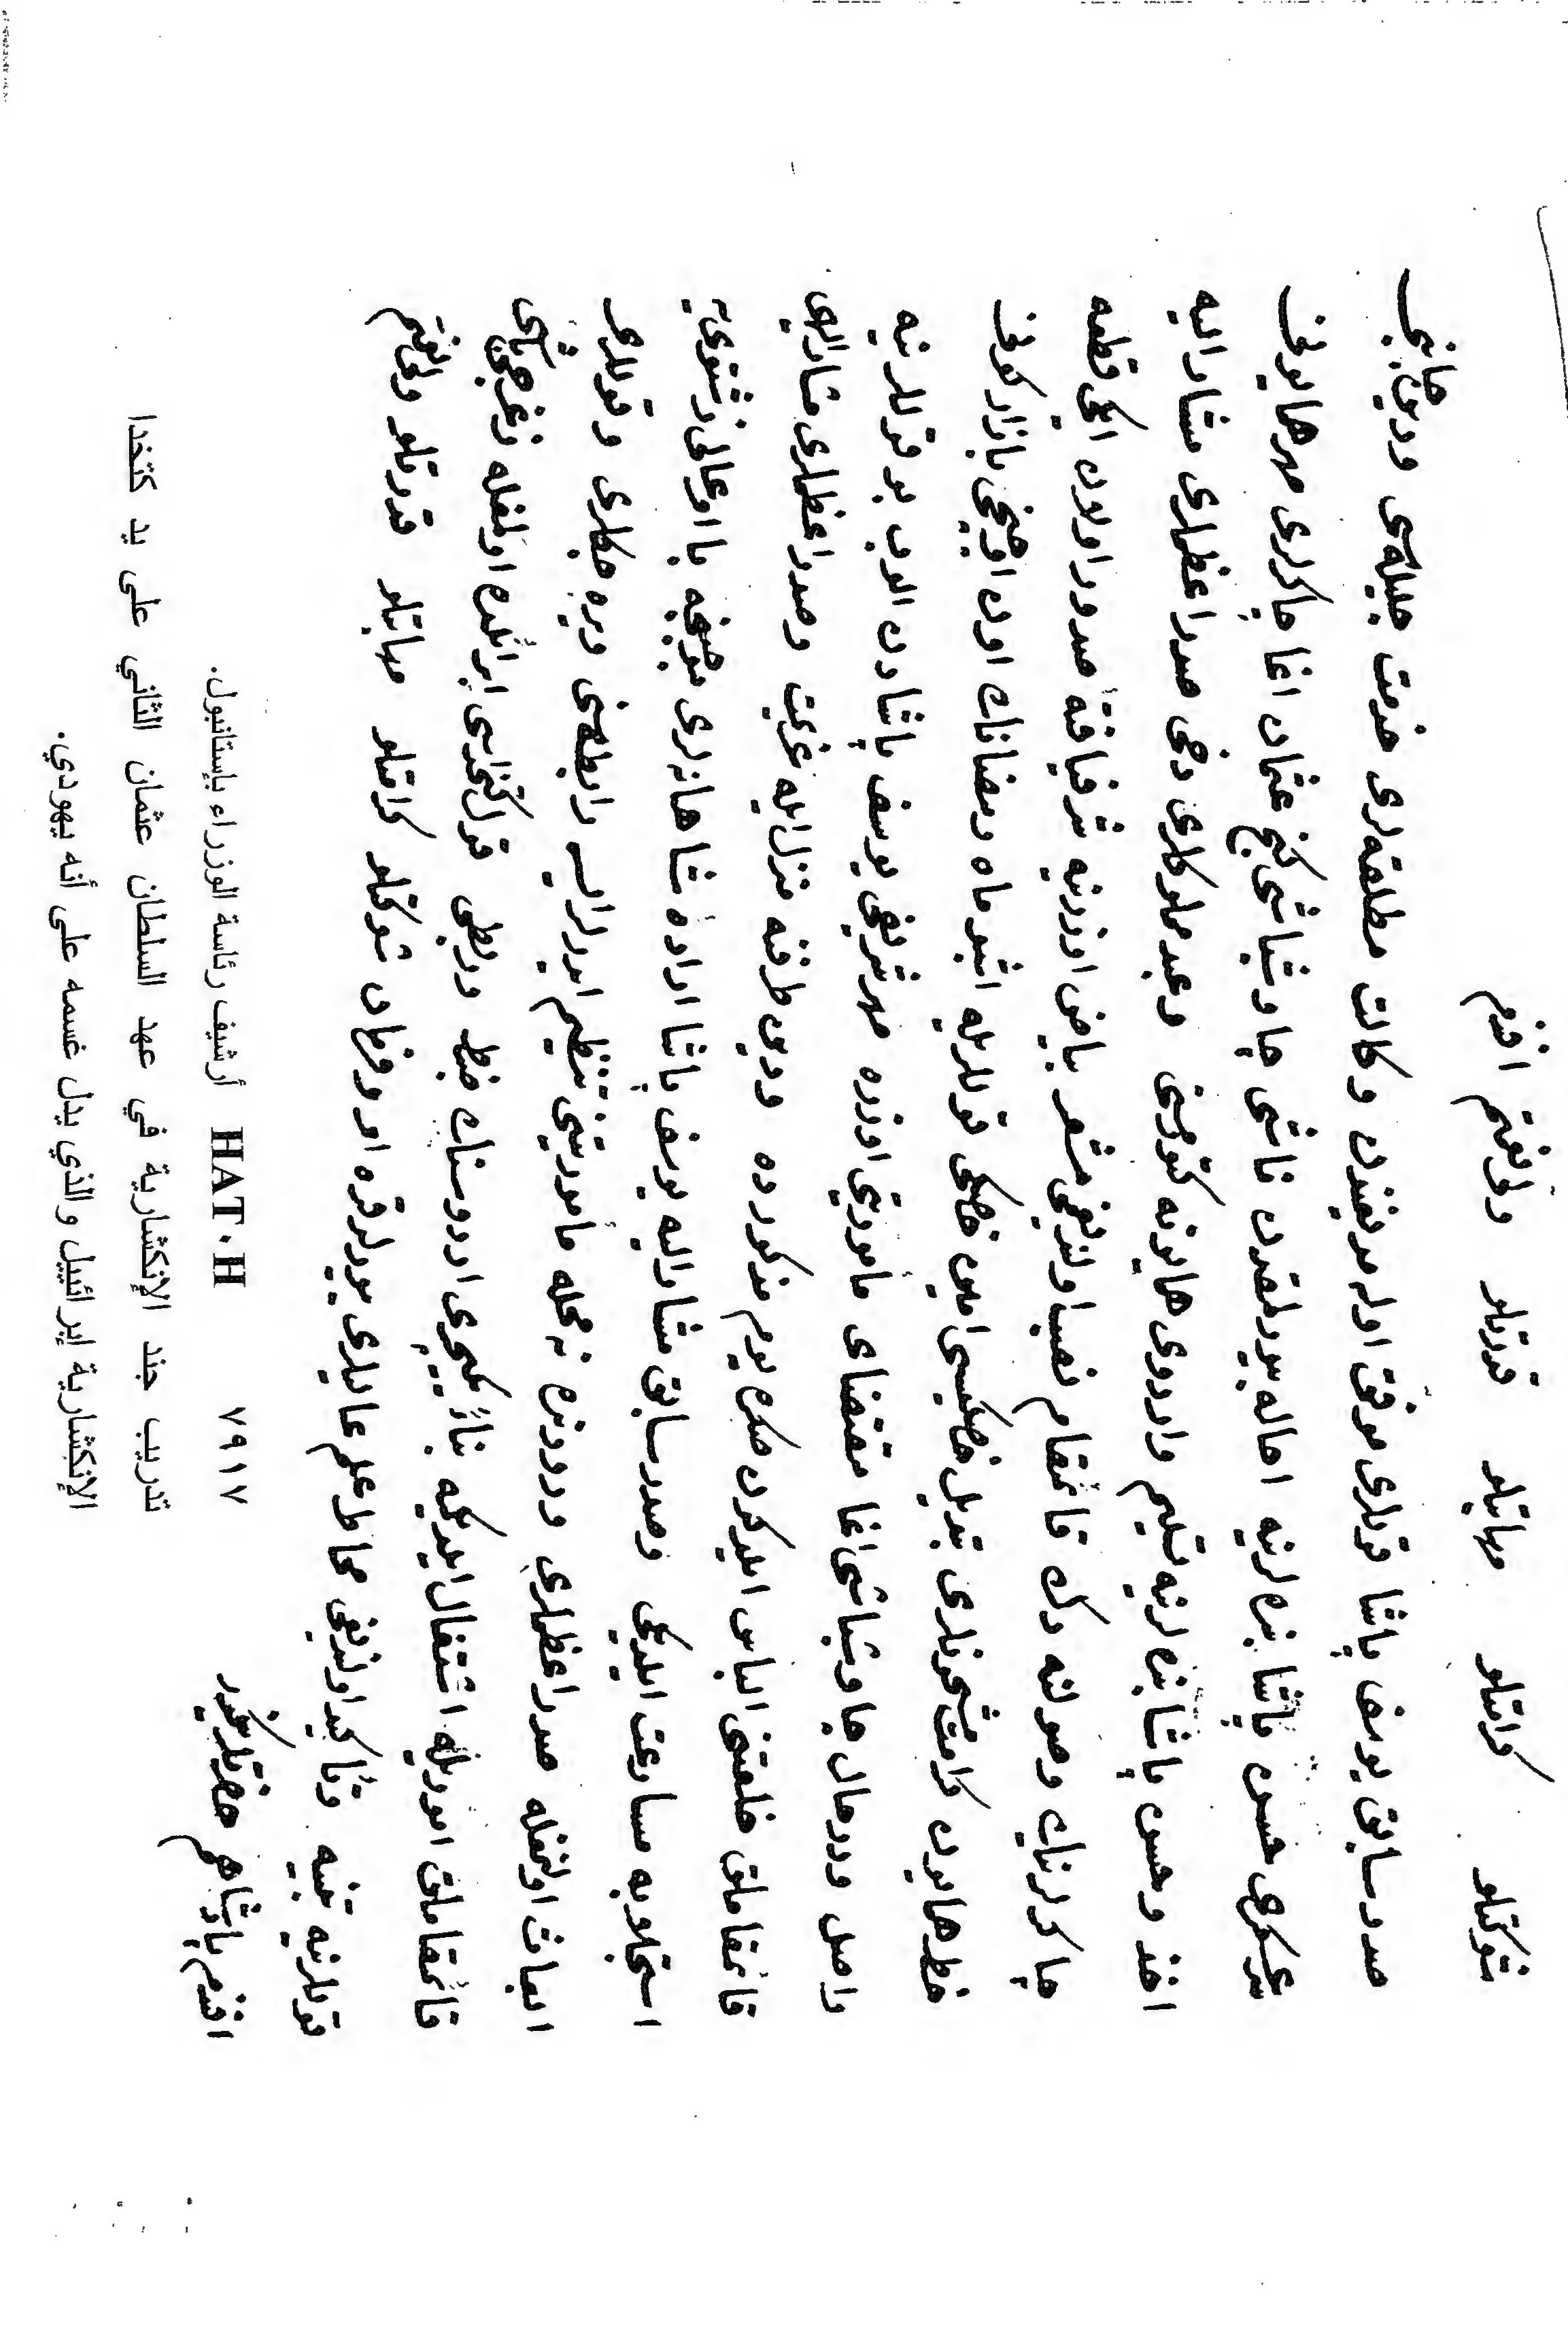 شوكتلو كرامتلو مهابتلو قدرتلو ولينعمتم افندم
صدر سابق يوسف پاشا قوللرى موفق اوله مديغندن وكالت مطلقه لرى خدمت جليله سى ودين جانبى
سرعسكرى حسن پاشا بنده لرينه احاله بيورلمقدن ناشى چاوشباشى كنج عثمان اغا چاكرلرى مهر همايونى
اخذ و حسن پاشا بنده لرينه تسليم واردوى همايونه كتورمسنى وعبد مملوكلرى دخى صدراعظملرى مشار اليه
چاكرلرينك وصولنه دك قائمقام نصب اولنديغى مشعر بياض اوزرينه شرفيافتۀ صدور اولان ايكى قطعه
خط همايون كرامتمشحونلرى تبديل خاصكيسى امين خاصكى قوللريله اشبو ماه رمضانك اون اوچنجى بازار كونى
واصل ودرحال چاوشباشى اغا مقتضاى مأموريتى اوزره مهر شريفى يوسف پاشادن الوب بو قوللرينه
قائمقاملق خلعتنى الباس ايلدكدن صكره يوم مذكورده ودين طرفنه منزل ايله عزيمت وصدراعظملرى مشاراليهى
استجلابه مسارعت ايلديكى وصدر سابق مشار اليه يوسف پاشا ارادۀ شاهانه لرى موجبنجه
اولنمغله صدراعظملرى ورودنده نه كله مأموريتنى تنظيم ايدرلر ايسه رابطه سنى ويره جكلرى وقوللرى
قائمقاملق اموريله اشتغال ايلديكمه بناءً يكيچرى اردوسنك ضبط وربطى قول كتخداسى
قوللرينه تنبيه وتأكيد اولنديغى محاط علم عاليلرى بيورلدقده امر وفرمان شوكتلو كرامتلو مهابتلو قدرتلو ولينعمتم
افندم پادشاهم حضرتلرينكدر
٧٩١٧ HAT.H أرشيف رئاسة الوزراء بإستانبول.
تدريب جند الإنكشارية في عهد السلطان عثمان الثاني على يد كتخدا
الإنكشارية إبرائييل والذي يدل غسمه على أنه يهودي.